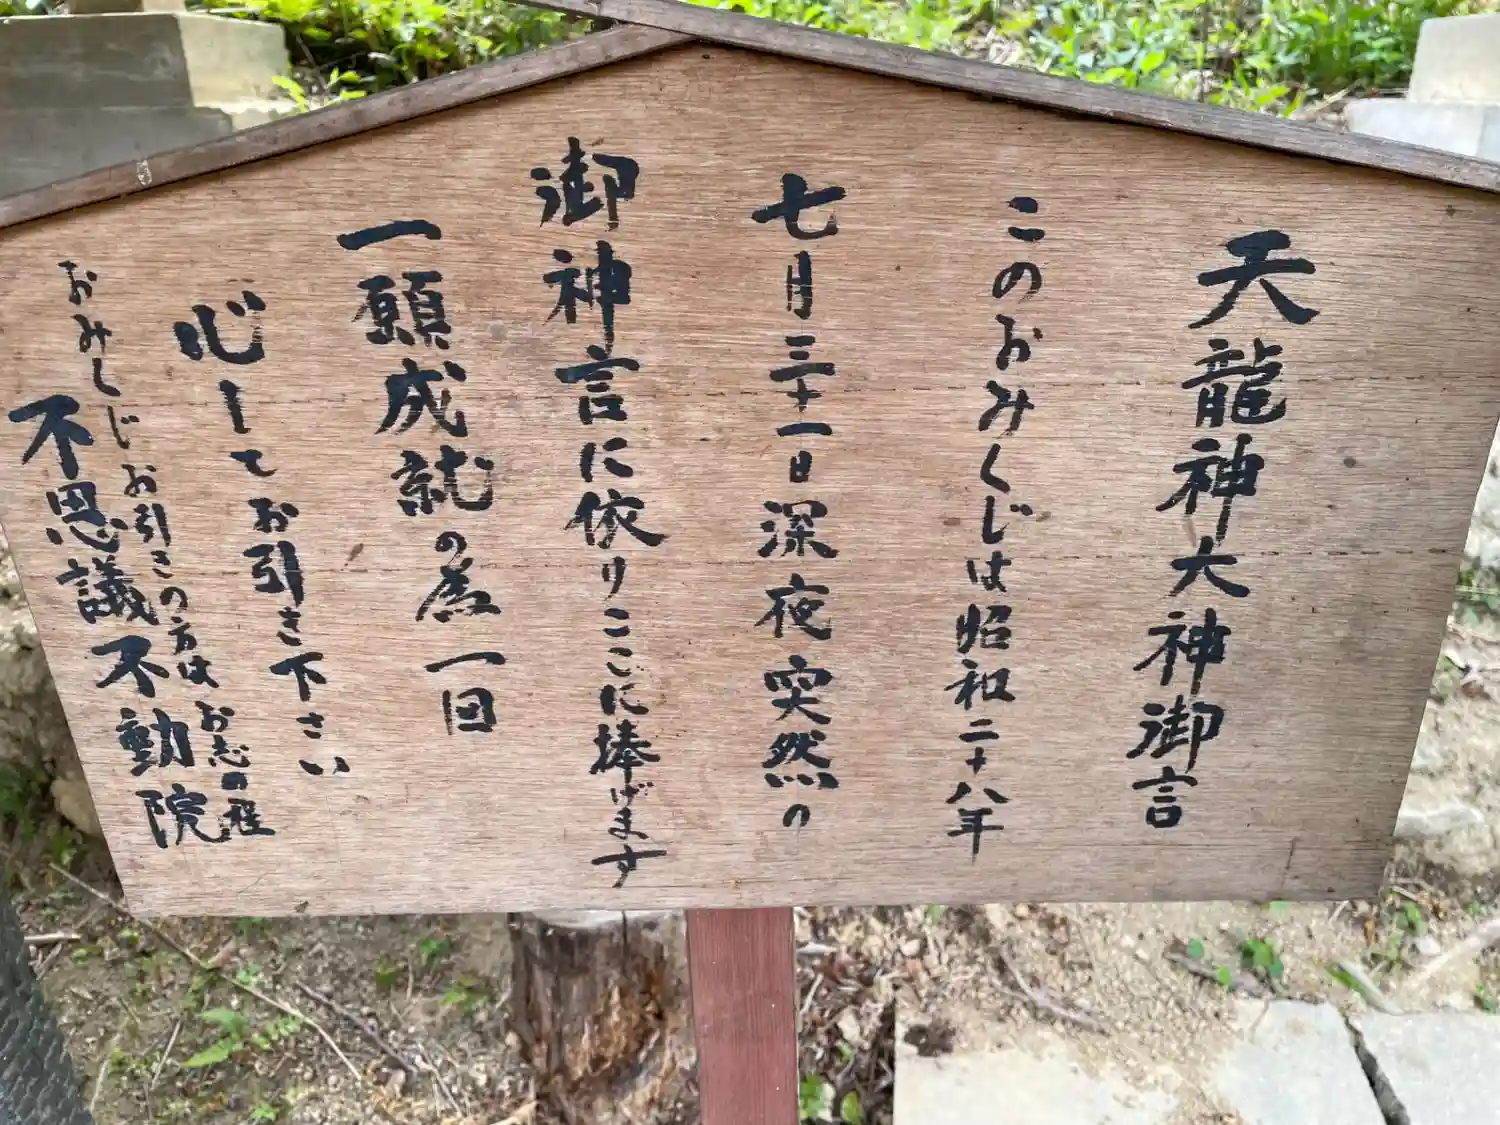 天龍神大神御言
このおみくじは昭和二十八年
七月三十一日深夜突然の
御神言に依りここに捧げます
一願成就の為一回
心してお引き下さい
おみしじお引きの方はお志の程
不思議不動院